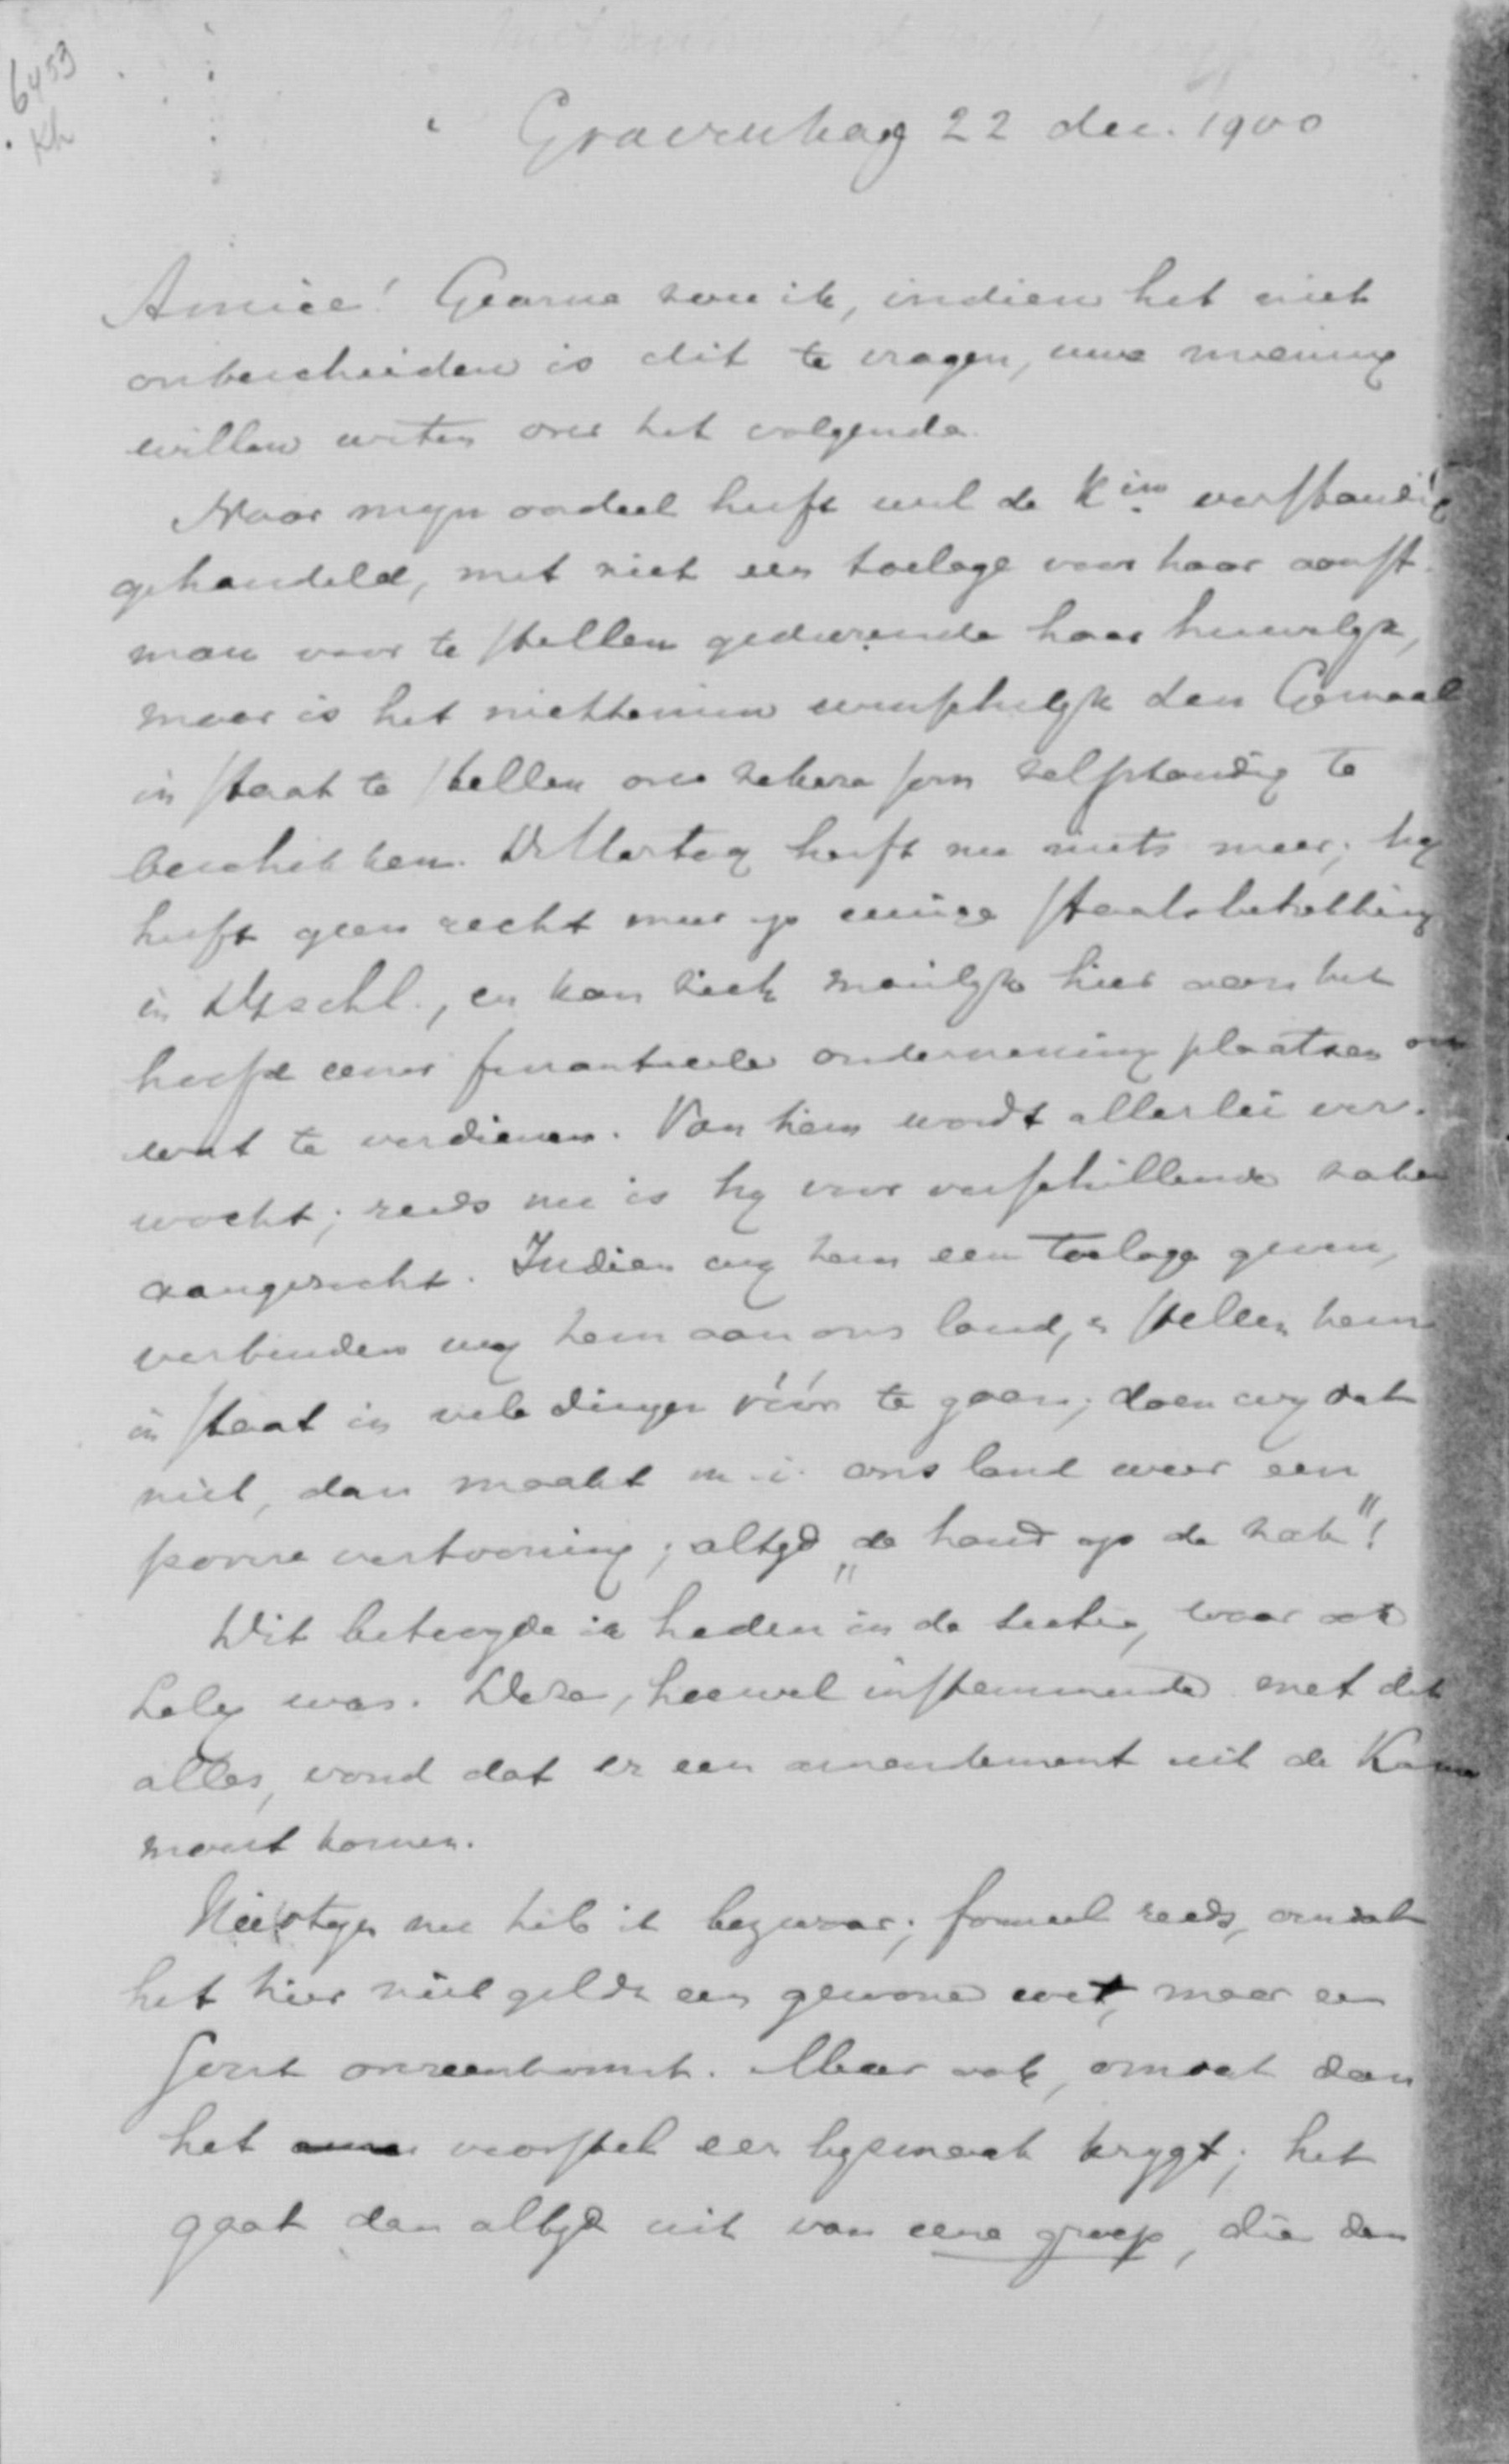 6453
Kh
Gravenhag 22 dec. 1900
Amice! Gaarne zou ik, indien het niet
onbescheiden is dit te vragen, uwe meening
willen weten over het volgende.
Naar mijn oordeel heeft wel de K.in verstandig
gehandeld, met niet een toelage voor haar aanst.
man voor te stellen gedurende haar huwelijk,
maar is het niettemin wenschelijk den Gemaal
in staat te stellen over zekere som zelfstandig te
beschikken. De Hertog heeft nu niets meer; hij
heeft geen recht meer op eenige staatsbetrekking
in Dtschl., en kan zich moeilijk hier aan het
hoofd eener financieele onderneming plaatsen om
wat te verdienen. Van hem wordt allerlei ver-
wacht; reeds nu is hij voor verschillende zaken
aangezocht. Indien wij hem een toelage geven,
verbinden wij hem aan ons land, & stellen hem
in staat in vele dingen vóór te gaan; doen wij dat
niet, dan maakt m.i. ons land weer een
povere vertooning; altijd „de hand op de zak"!
Dit betoogde ik heden in de sectie, waar ook
Lely was. Deze, hoewel instemmende met dit
alles, vond dat er een amendement uit de Kamer
moest komen.
Hiertegen nu heb ik bezwaar; formeel reeds, omdat
het hier niet geldt een gewone wet, maar een
soort overeenkomst. Maar ook, omdat dan
het voorstel een bijsmaak krijgt; het
gaat dan altijd uit van eene groep, die dan